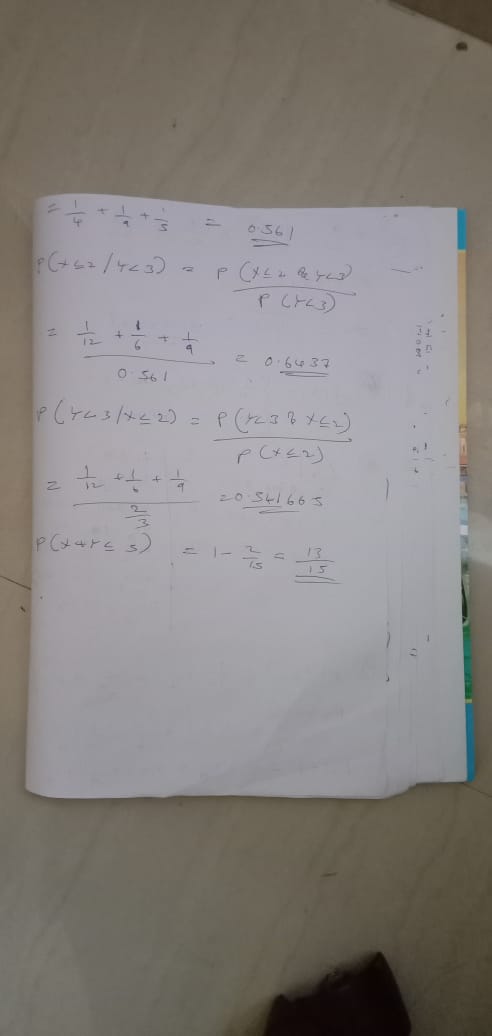 = 1/4 + 1/9 + 1/5 = 0.561
P(X≤2/Y<3) = P(X≤2 & Y<3) / P(Y<3)
= (1/12 + 1/6 + 1/9) / 0.561 = 0.6437
P(Y<3/X≤2) = P(Y<3 & X≤2) / P(X≤2)
= (1/12 + 1/6 + 1/9) / (2/3) = 0.541665
P(X+Y≤5) = 1 - 2/15 = 13/15